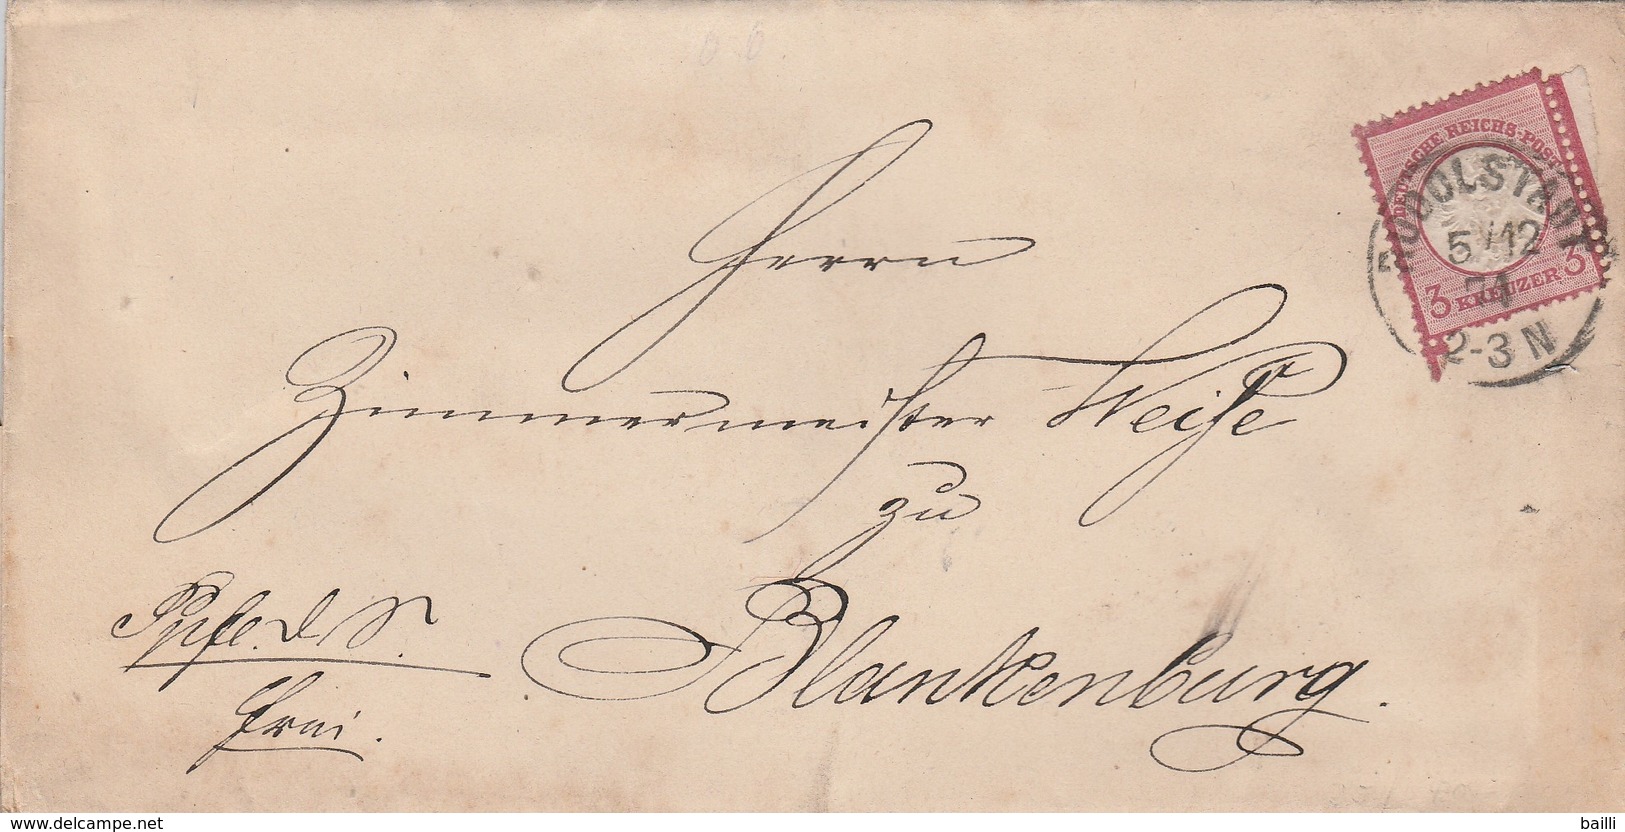 DEUTSCHE REICHS-POST
3 KREUZER 3
RUDOLSTADT
5/12
74
2-3 N
Herrn
Zimmermeister Weise
zu
Blankenburg.
frei.
www.delcampe.net
bailli